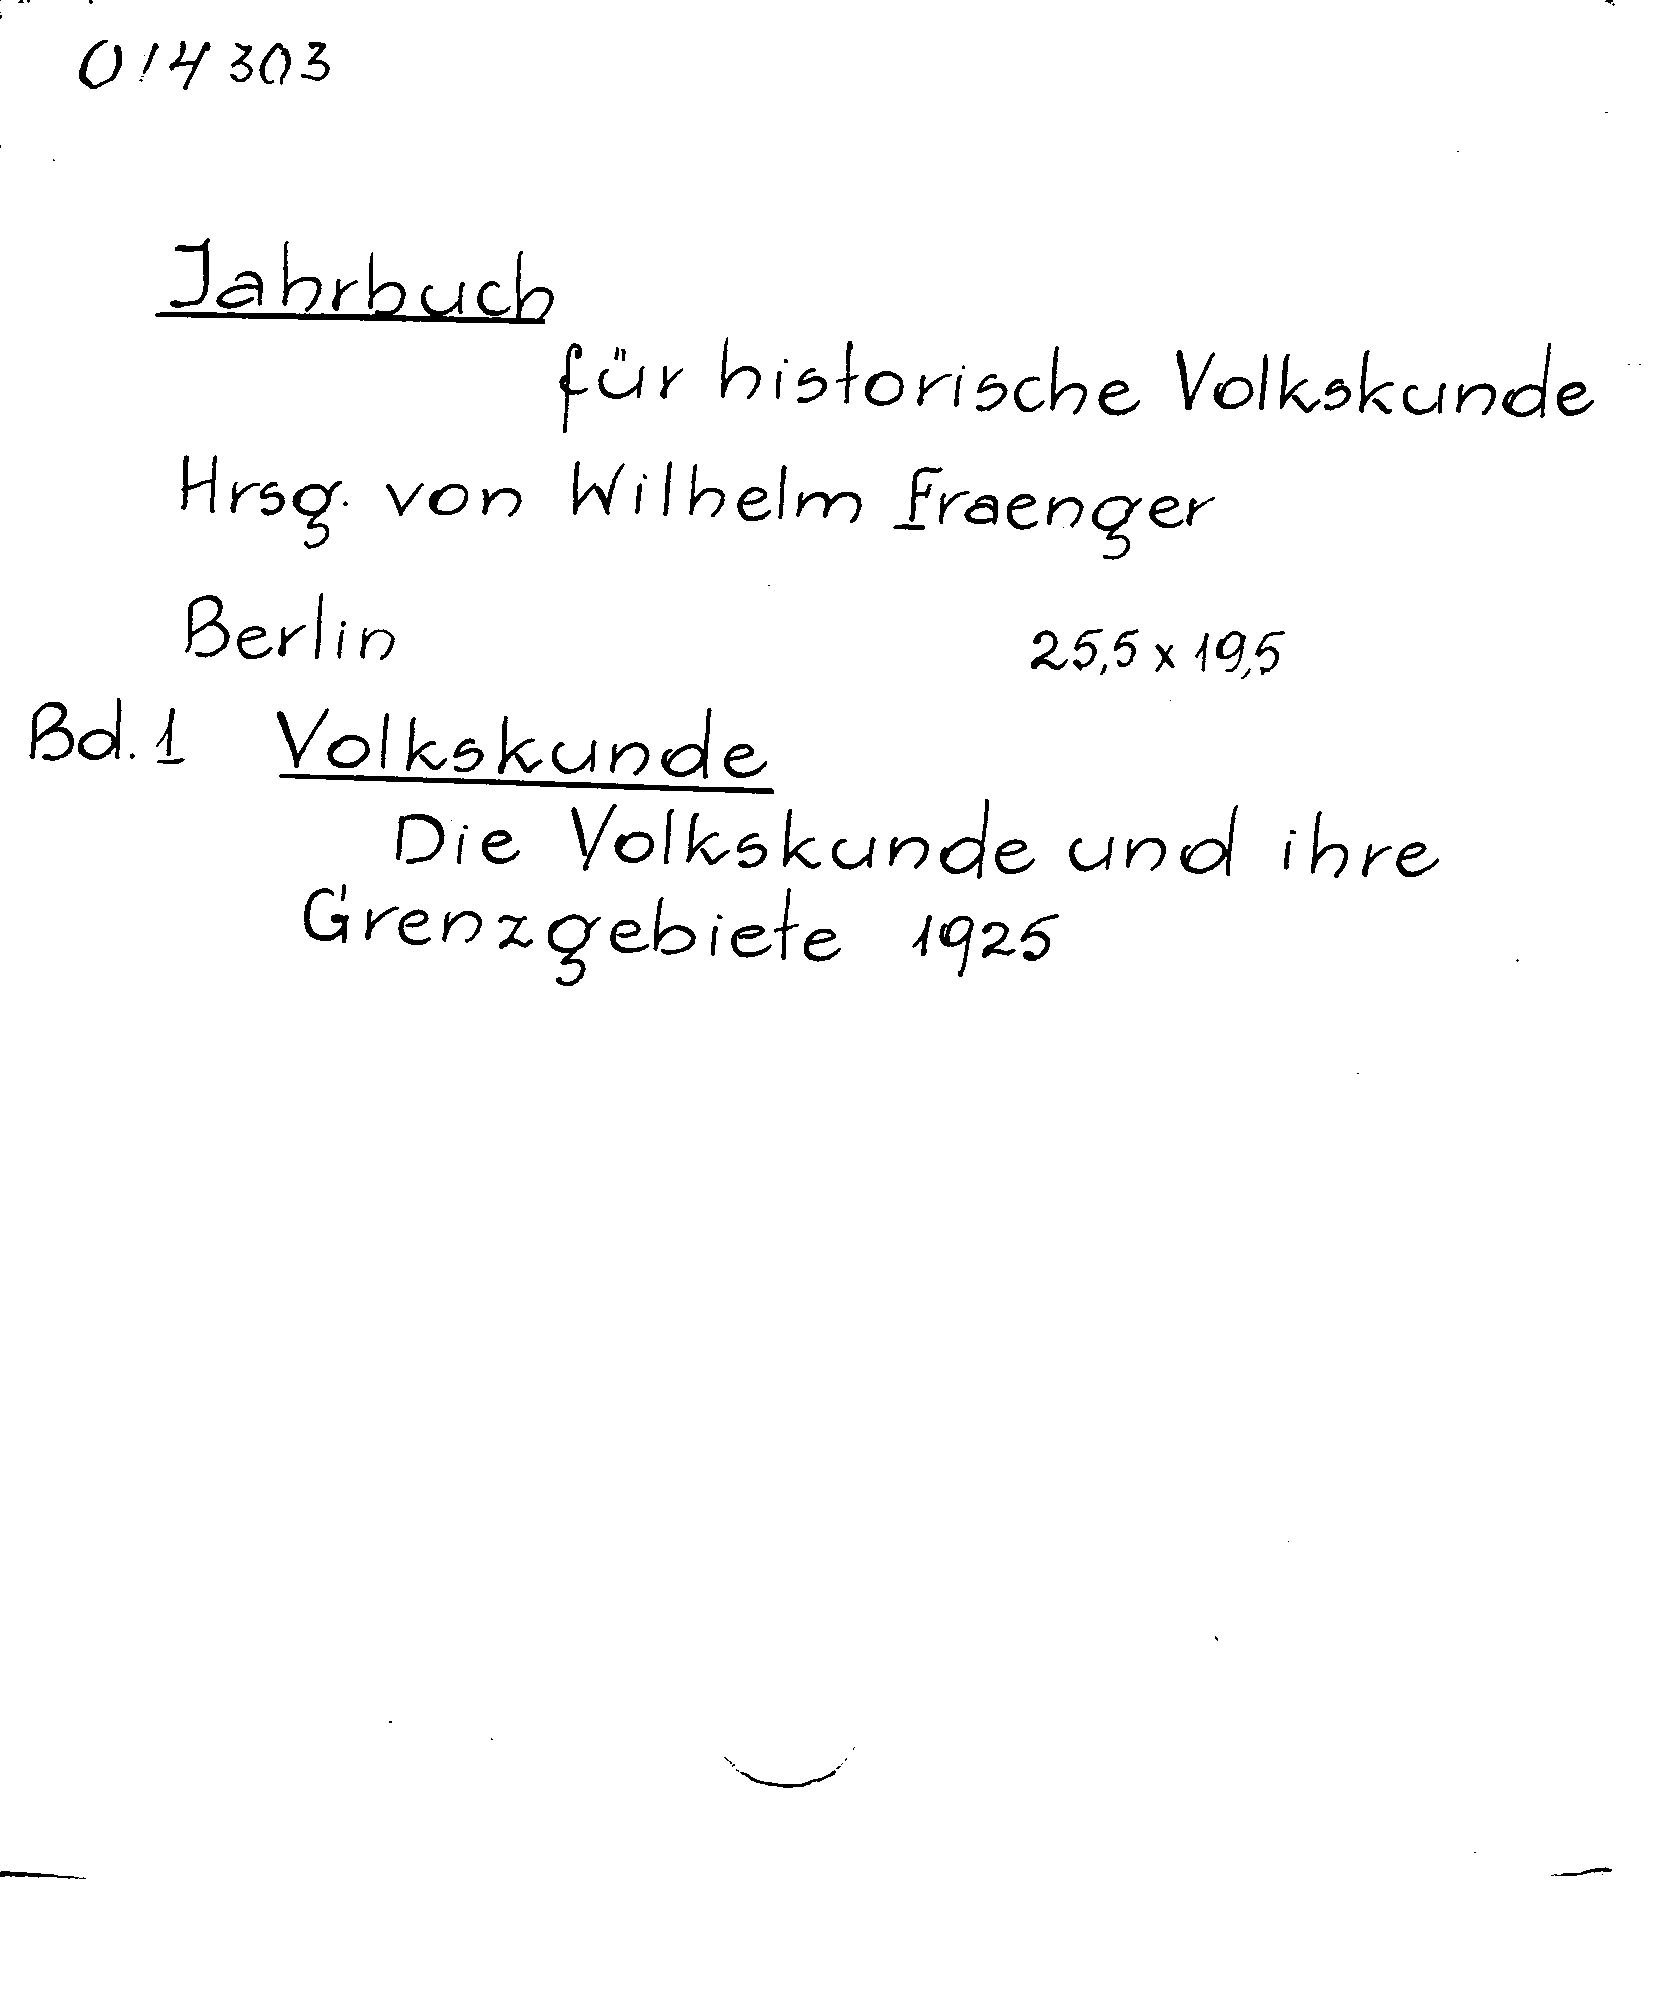 014303
Jahrbuch
für historische Volkskunde
Hrsg. von Wilhelm Fraenger
Berlin 25,5 x 19,5
Bd. 1 Volkskunde
Die Volkskunde und ihre
Grenzgebiete 1925